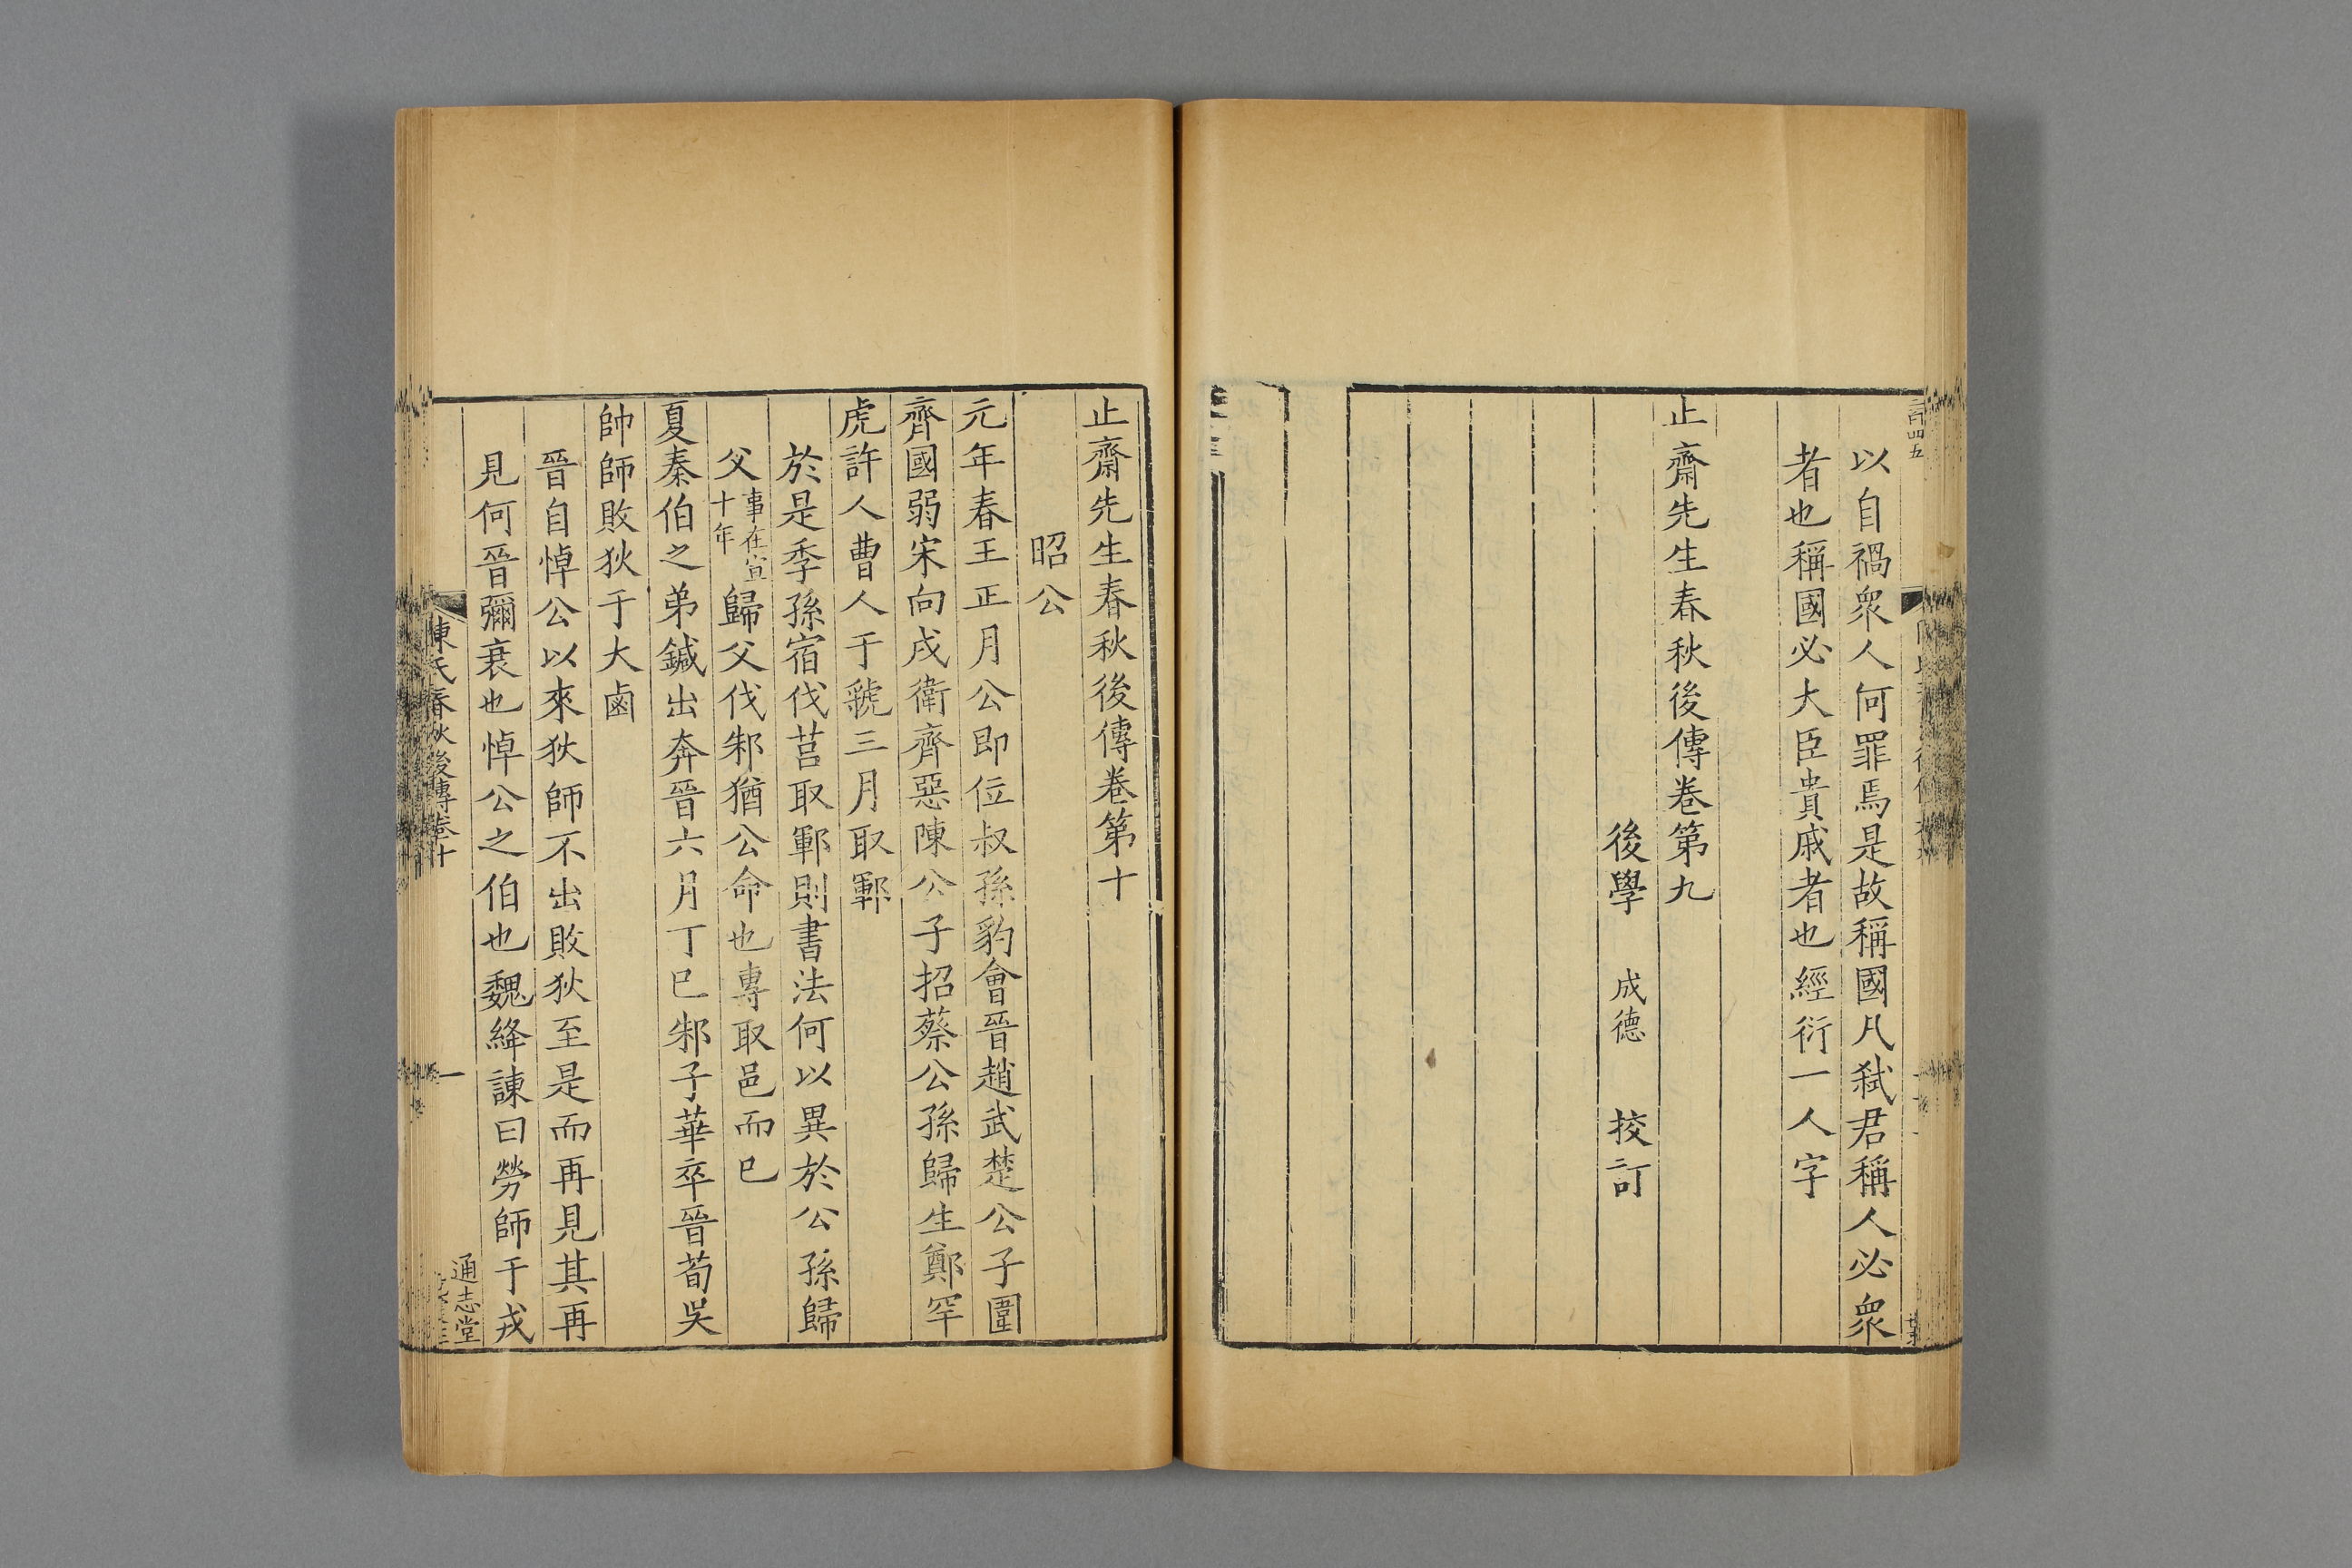 二百四五
以自禍衆人何罪焉是故稱國凡弑君稱人必衆
者也稱國必大臣貴戚者也經衍一人字
止齋先生春秋後傳卷第九
後學 成德 校訂
止齋先生春秋後傳卷第十
昭公
元年春王正月公即位叔孫豹會晉趙武楚公子圍
齊國弱宋向戌衛齊惡陳公子招蔡公孫歸生鄭罕
虎許人曹人于虢三月取鄆
於是季孫宿伐莒取鄆則書法何以異於公孫歸
父事在宣十年歸父伐邾猶公命也專取邑而已
夏秦伯之弟鍼出奔晉六月丁巳邾子華卒晉荀吳
帥師敗狄于大鹵
晉自悼公以來狄師不出敗狄至是而再見其再
見何晉彌衰也悼公之伯也魏絳諫曰勞師于戎
陳氏春秋後傳卷十
一
通志堂